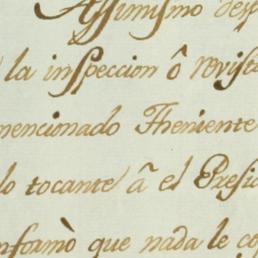 Assimismo desp
la inspeccion ô revista
mencionado Theniente
lo tocante â el Presid
nformò que nada le co